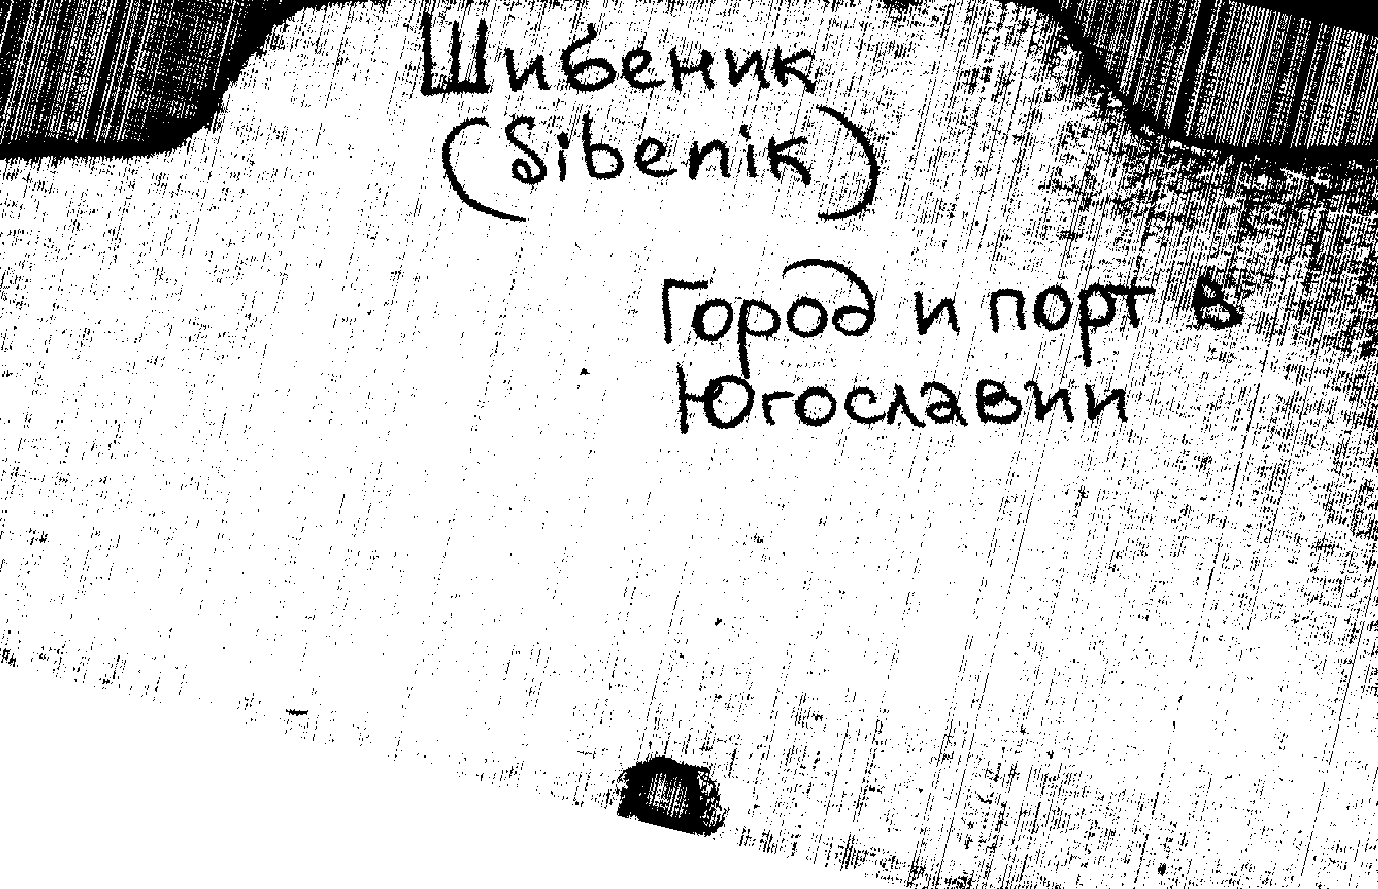 Шибеник
(Sibenik)
Город и порт в
Югославии